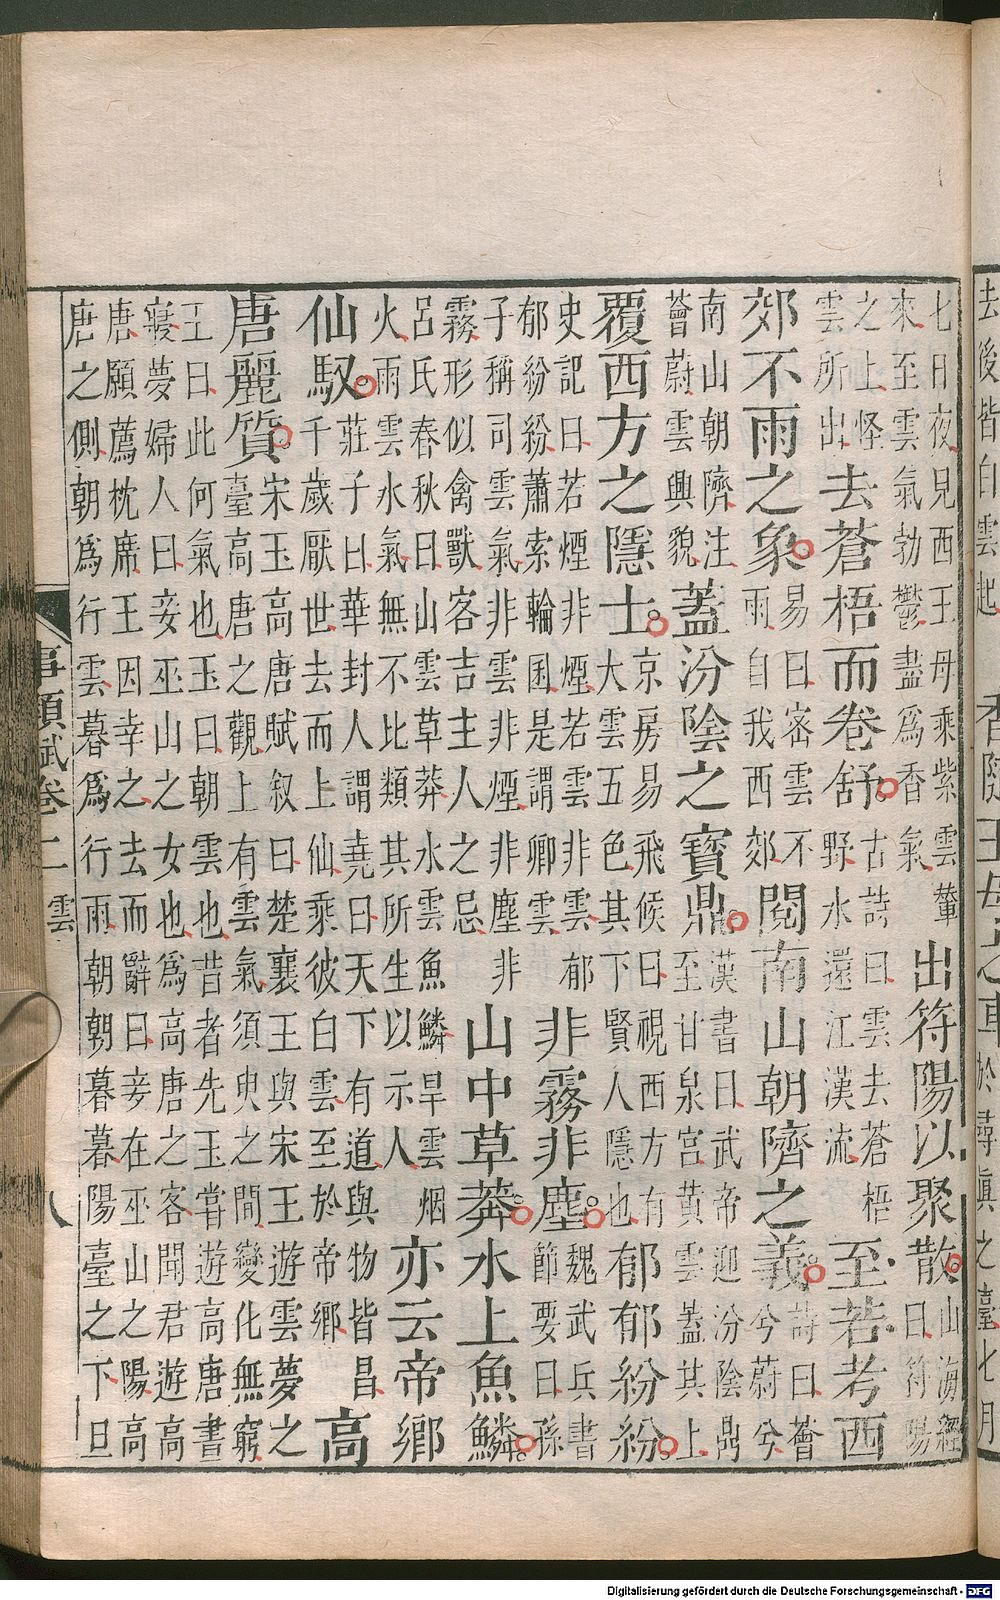 去後皆白雲起
香隨王母之車
於尋真之臺七月
七日夜見西王母乘紫雲輦
來至雲氣勃鬱盡為香氣
出符陽以聚散
山海經
曰符陽
之上怪
雲所出
去蒼梧而卷舒
古詩曰雲去蒼梧
野水還江漢流
至若考西
郊不雨之象
易曰密雲不
雨自我西郊
閱南山朝隮之義
詩曰薈
兮蔚兮
南山朝隮注
薈蔚雲興貌
蓋汾陰之寶鼎
漢書曰武帝迎汾陰鼎
至甘泉宮黃雲蓋其上
覆西方之隱士
京房易飛候曰視西方有
大雲五色其下賢人隱也
郁郁紛紛
史記曰若煙非煙若雲非雲郁
郁紛紛蕭索輪囷是謂卿雲
非霧非塵
魏武兵書
節要曰孫
子稱司雲氣非雲非煙非塵非
霧形似禽獸客吉主人之忌
山中草莽水上魚鱗
呂氏春秋曰山雲草莽水雲魚鱗旱雲烟
火雨雲水氣無不比類其所生以示人
亦云帝鄉
仙馭
莊子曰華封人謂堯曰天下有道與物皆昌
千歲厭世去而上仙乘彼白雲至於帝鄉
高
唐麗質
宋玉高唐賦叙曰楚襄王與宋王遊雲夢之
臺高唐之觀上有雲氣須臾之間變化無窮
王曰此何氣也玉曰朝雲也昔者先玉嘗遊高唐晝
寢夢婦人曰妾巫山之女也為高唐之客聞君遊高
唐願薦枕席王因幸之去而辭曰妾在巫山之陽高
唐之側朝為行雲暮為行雨朝朝暮暮陽臺之下旦
事類賦卷二
雲
八
Digitalisierung gefördert durch die Deutsche Forschungsgemeinschaft - DFG